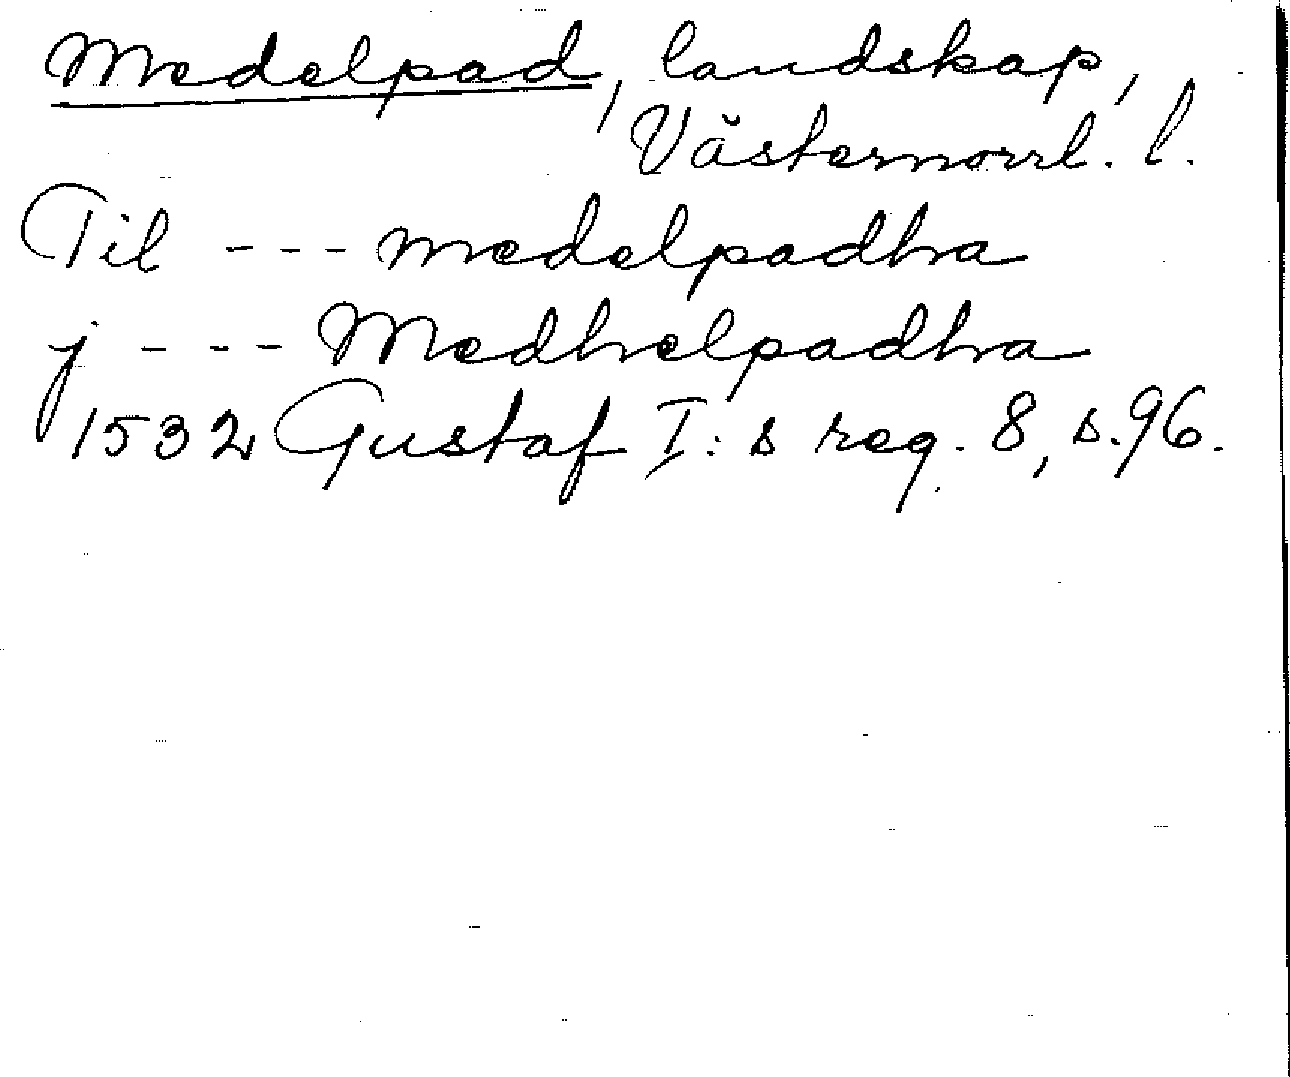 Medelpad, landskap,
Västernorrl. l.
Til --- medelpadha
j --- Medhelpadha
1532 Gustaf I:s reg. 8, s. 96.